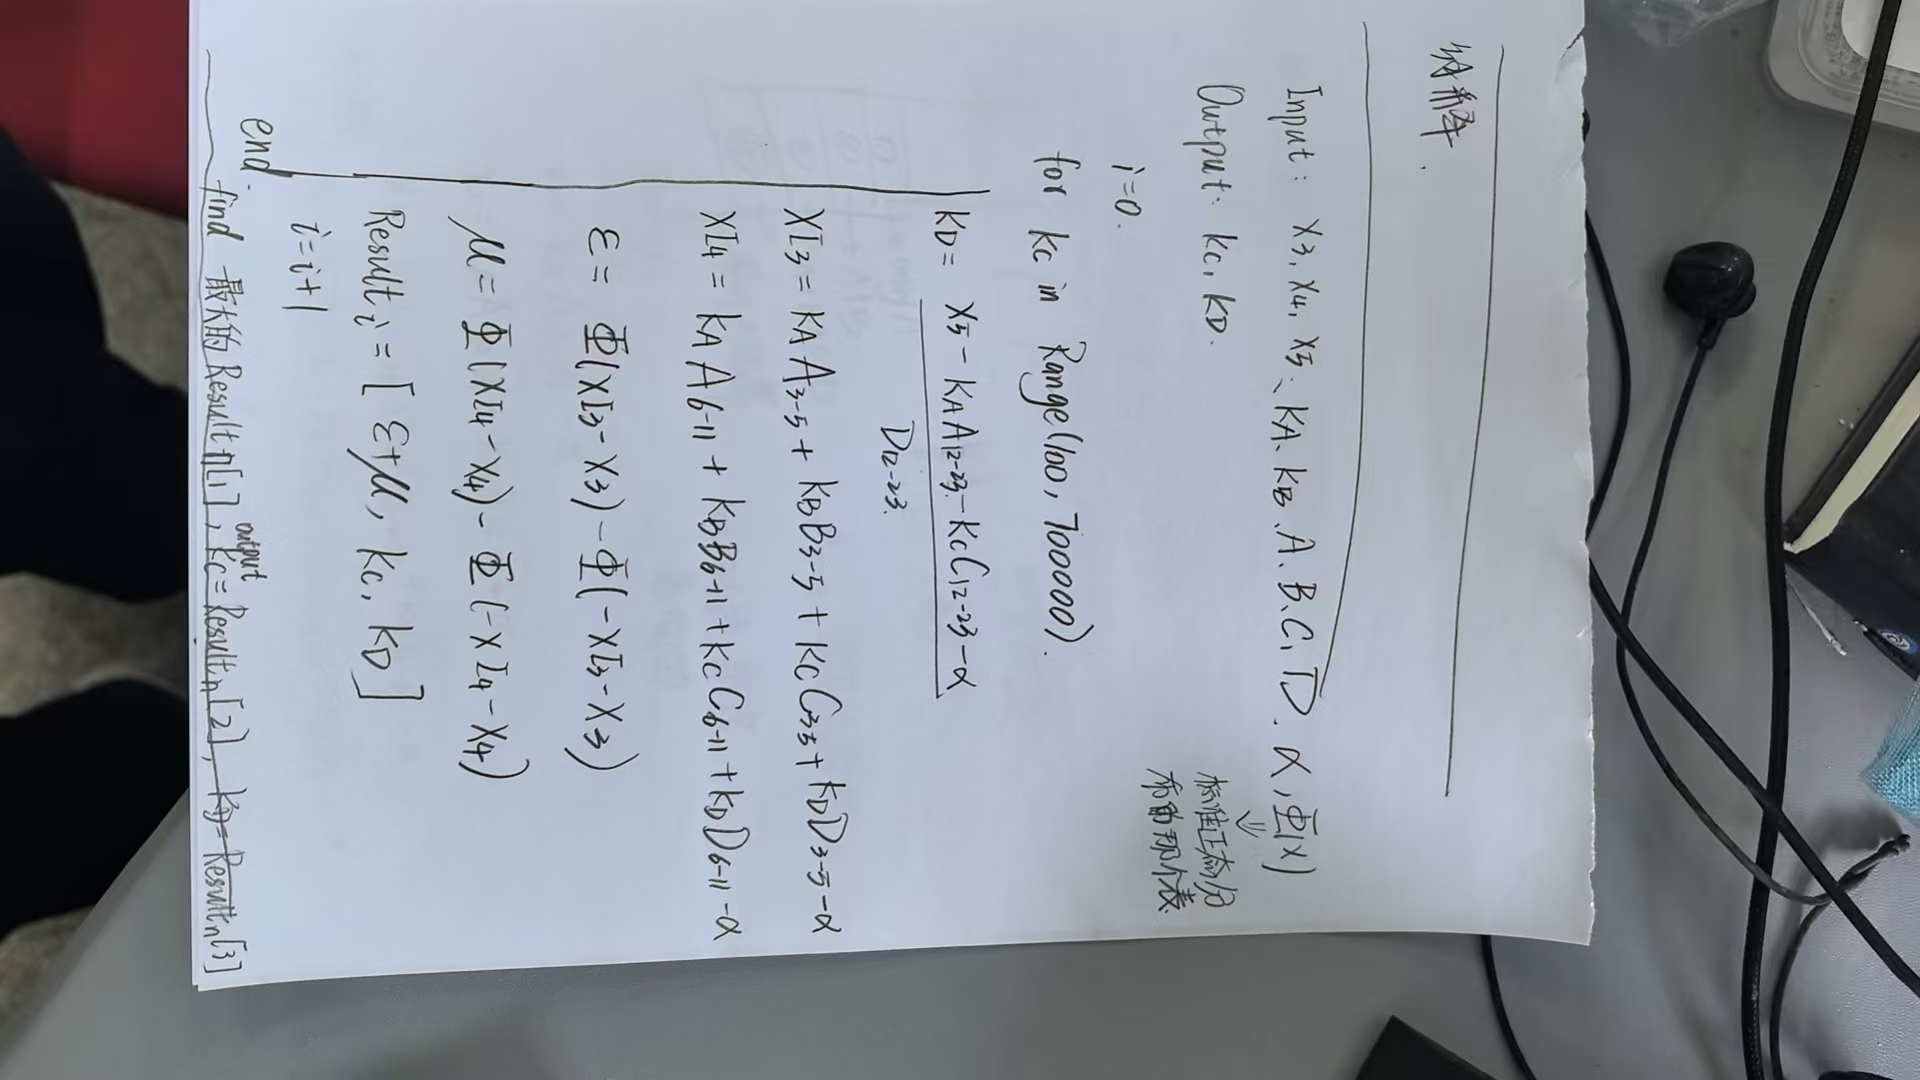 纳什解.
Input: X3, X4, X5、KA、KB、A、B、C、D. α, Φ(x)
⇓
标准正态分
布的那个表
Output: Kc, KD.
i=0.
for Kc in Range(100, 700000).
KD = X5 - KA A12-23 - Kc C12-23 - α
D12-23.
XI3 = KA A3-5 + KB B3-5 + KC C3-5 + KD D3-5 - α
XI4 = KA A6-11 + KB B6-11 + KC C6-11 + KD D6-11 - α
ε = Φ(XI3 - X3) - Φ(-XI3 - X3)
μ = Φ(XI4 - X4) - Φ(-XI4 - X4)
Result i = [ε+μ, Kc, KD]
i=i+1
end.
find 最大的 Result n[1], output Kc = Result n[2], KD = Result n[3]